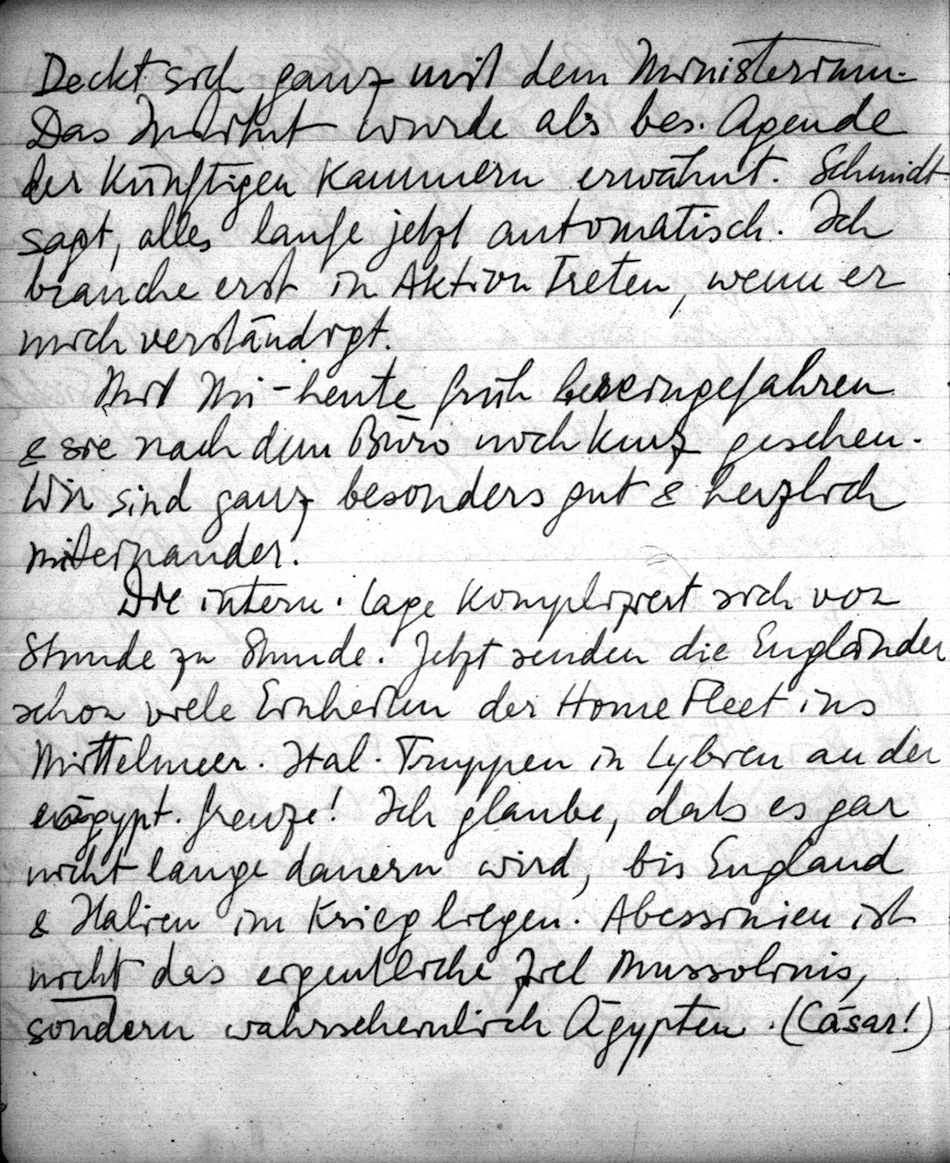 Deckt sich ganz mit dem Ministerium.
Das Institut wurde als bes. Agende
der künftigen Kammern erwähnt. Schmidt
sagt, alles laufe jetzt automatisch. Ich
brauche erst in Aktion treten, wenn er
mich verständigt.
Mit Mi – heute früh hereingefahren
& sie nach dem Büro noch kurz gesehen.
Wir sind ganz besonders gut & herzlich
miteinander.
Die intern. Lage kompliziert sich von
Stunde zu Stunde. Jetzt senden die Engländer
schon viele Einheiten der Home Fleet ins
Mittelmeer. Ital. Truppen in Lybien an der
ägypt. Grenze! Ich glaube, dass es gar
nicht lange dauern wird, bis England
& Italien im Krieg liegen. Abessinien ist
nicht das eigentliche Ziel Mussolinis,
sondern wahrscheinlich Ägypten. (Cäsar!)